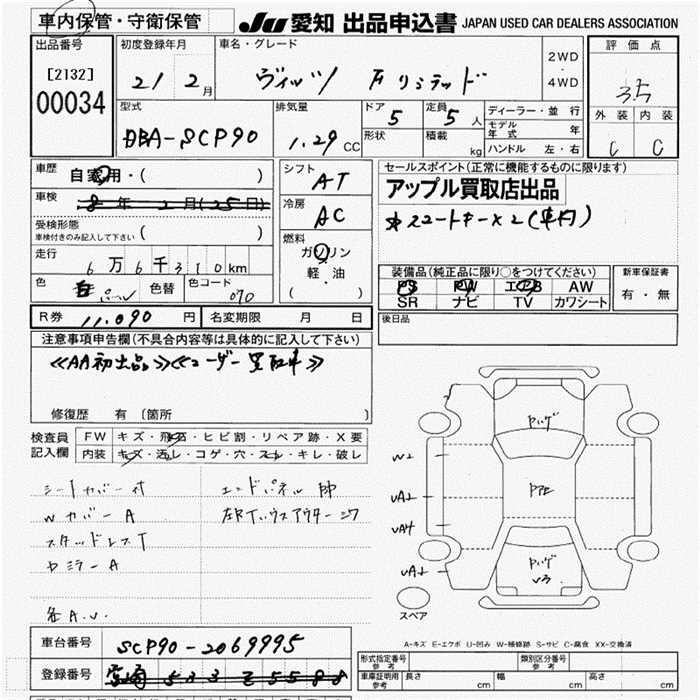 車内保管・守衛保管
JU 愛知 出品申込書 JAPAN USED CAR DEALERS ASSOCIATION
出品番号 初度登録年月 車名・グレード 評価点
[2132]
00034
21 2月 ヴィッツ Fリミテッド 2WD・4WD 3.5
型式 排気量 ドア 定員 ディーラー・並行 外装 内装
DBA-SCP90 1.29CC 5 5人 モデル年式 年 C C
形状 積載 kg ハンドル 左・右
車歴 自家用・( ) シフト AT セールスポイント(正常に機能するものに限ります)
アップル買取店出品
車検 8年2月(25日) 冷房 AC
*スマートキーx2(車内)
受検形態
車検付きのみ記入して下さい ( )
燃料 ガソリン
軽・油
( )
走行 6万6千310km
装備品(純正品に限り○をつけてください) 新車保証書
色 パール 色替 色コード 070
PS PW エアB AW 有・無
SR ナビ TV カワシート
R券 11,090円 名変期限 月 日 後日品
注意事項申告欄(不具合内容等は具体的に記入して下さい)
≪AA初出品≫≪ユーザー買取車≫
修復歴 有 [箇所 ]
検査員記入欄 FW キズ・飛石・ヒビ割・リペア跡・X要
内装 キズ・汚レ・コゲ・穴・スレ・キレ・破レ
シートカバー付
Wカバー A
スタッドレスT
ドミラーA
各A.U.
エンドパネル
W2
UA2
UA4
UA2
V3
スペア
A-キズ E-エクボ U-凹み W-補修跡 S-サビ C-腐食 XX-交換済
車台番号 SCP90-2069995
登録番号 533
形式指定番号 参考 類別区分番号 参考
車庫証明用 参考 長さ cm 幅 cm 高さ cm